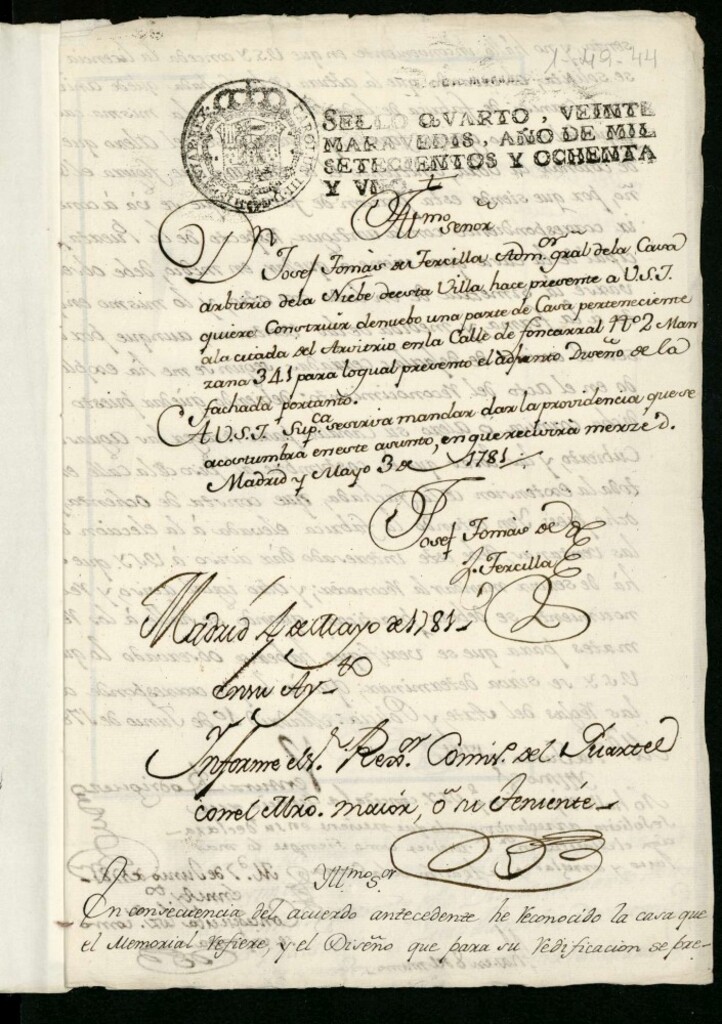 1-49-44
SELLO QVARTO, VEINTE
MARAVEDIS, AÑO DE MIL
SETECIENTOS Y OCHENTA
Y VNO
Yllmo Señor
Dn Josef Tomas de Tercilla Admor gral de la Casa
arbitrio de la Niebe de esta Villa, hace presente a V.S.I.
quiere Construir denuebo una parte de Casa perteneciente
ala citada del Arvitrio en la Calle de foncarral Nº 2 Man
zana 341 para loqual presento el adjunto Diseño de la
fachada portanto.
A V.S.I. Supca sesirva mandar dar la providencia que se
acostumbra en este asunto, en que recivirá merzed.
Madrid y Mayo 3 de 1781.
Josef Tomas de
Tercilla
Madrid 4 de Mayo de 1781
en su Ayto
Informe el Sr. Rexor Comis. del Quartel
con el Mro. maior, ó su Teniente
Yllmo Sor
En consecuencia del acuerdo antecedente he reconocido la casa que
el Memorial refiere, y el Diseño que para su redificacion se pre-